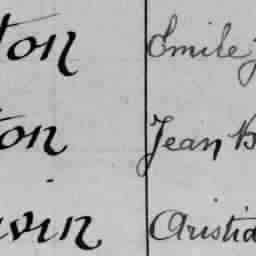 ton Emile J
ton Jean B
uvin Aristid